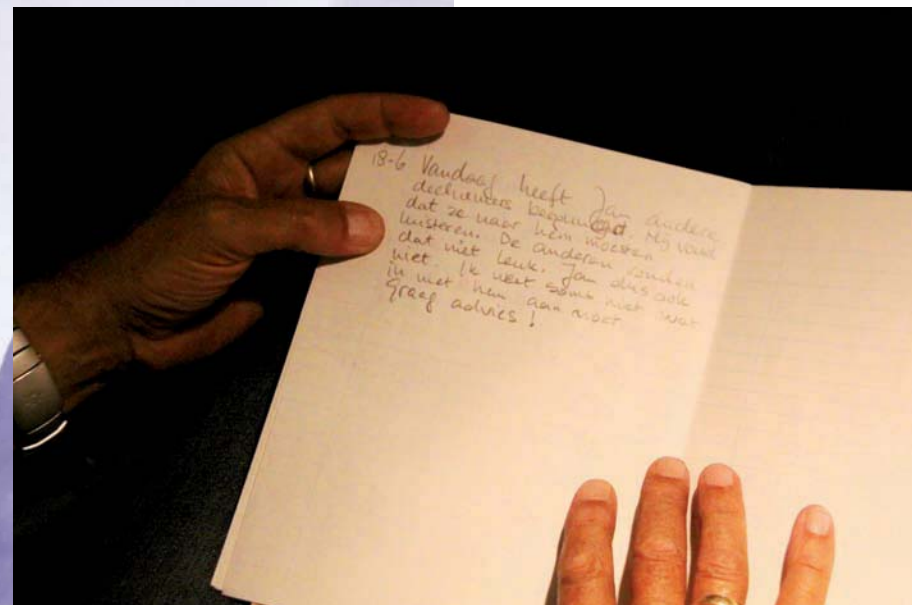 18-6 Vandaag heeft Jan andere
deelnemers begonnen. Hij vond
dat ze naar hem moesten
luisteren. De anderen vonden
dat niet leuk. Jan dus ook
niet. Ik weet soms niet wat
ik met hem aan moet
graag advies!